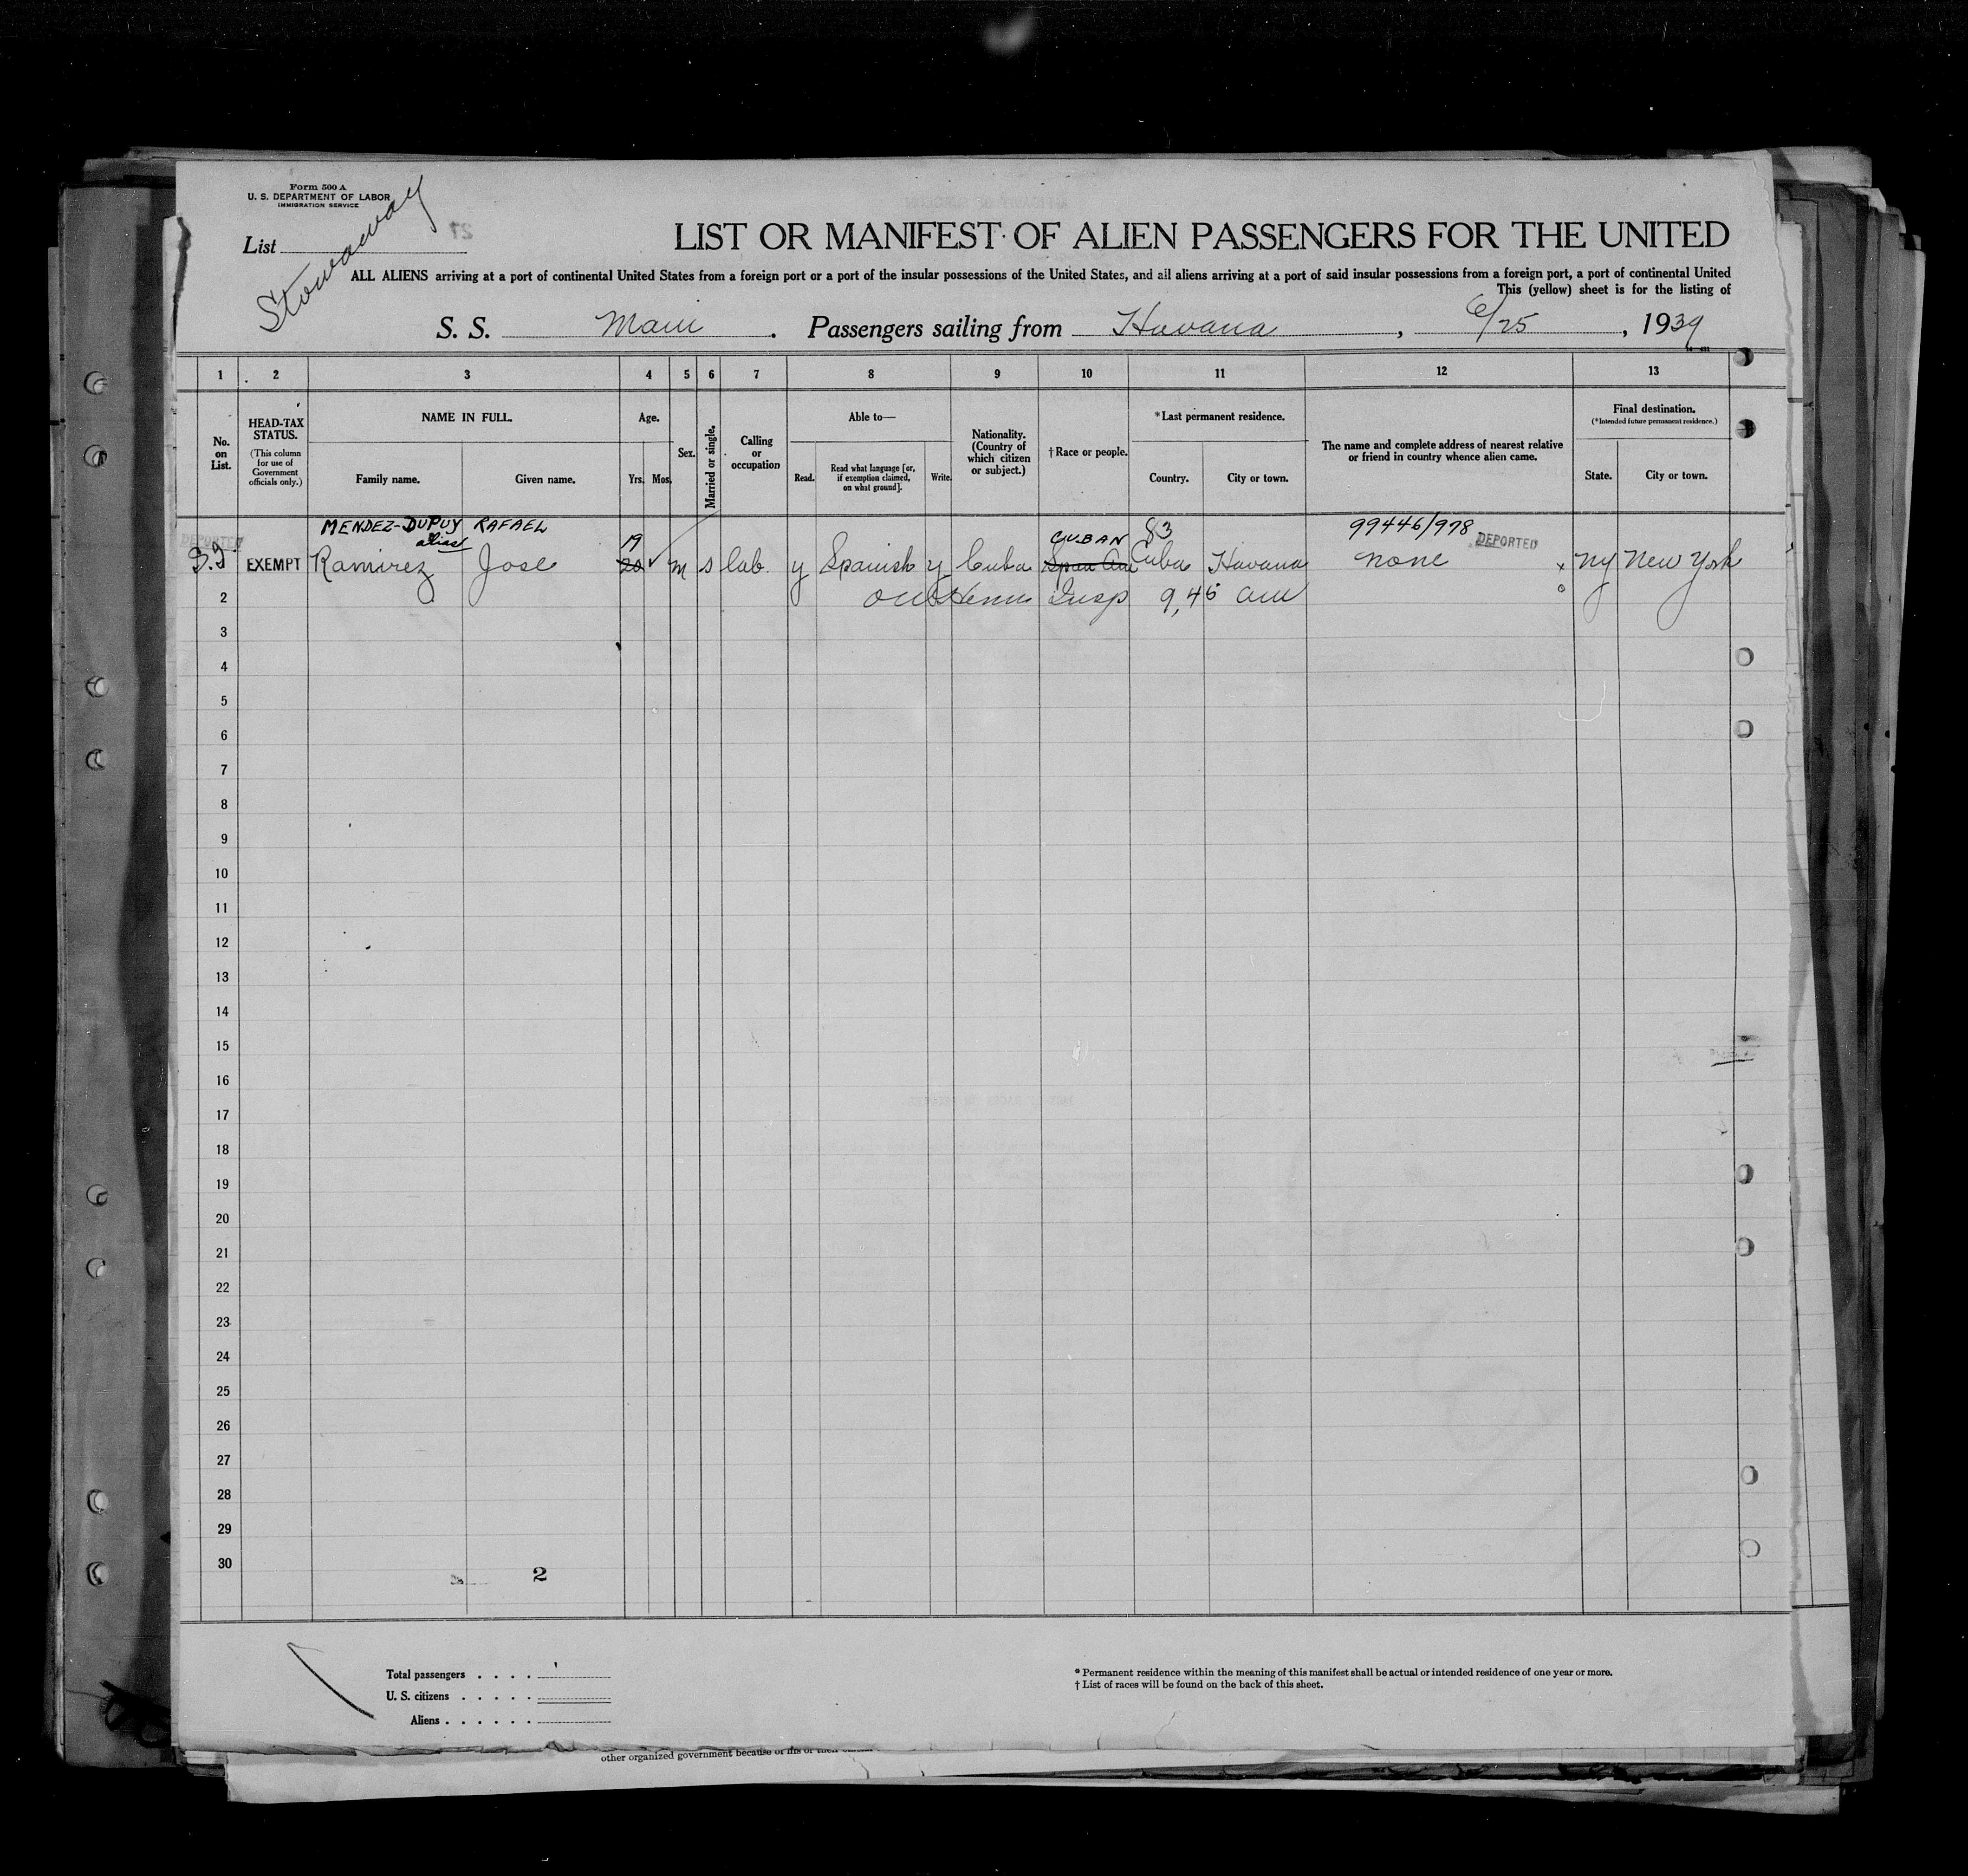 Form 500 A
U. S. DEPARTMENT OF LABOR
IMMIGRATION SERVICE
List
Stowaway
27
LIST OR MANIFEST OF ALIEN PASSENGERS FOR THE UNITED
ALL ALIENS arriving at a port of continental United States from a foreign port or a port of the insular possessions of the United States, and all aliens arriving at a port of said insular possessions from a foreign port, a port of continental United
This (yellow) sheet is for the listing of
S. S. Maui . Passengers sailing from Havana , 6/25 , 1939
1 2 3 4 5 6 7 8 9 10 11 12 13
No. on List.
HEAD-TAX STATUS.
(This column for use of Government officials only.)
NAME IN FULL.
Family name. Given name.
Age.
Yrs. Mos.
Sex.
Married or single.
Calling or occupation
Able to—
Read. Read what language [or, if exemption claimed, on what ground]. Write.
Nationality. (Country of which citizen or subject.)
†Race or people.
*Last permanent residence.
Country. City or town.
The name and complete address of nearest relative or friend in country whence alien came.
Final destination.
(*Intended future permanent residence.)
State. City or town.
MENDEZ-DUPUY RAFAEL 83 99446/978
DEPORTED alias 19 CUBAN DEPORTED
EXEMPT Ramirez Jose 20 m s lab. y Spanish y Cuba Span Am Cuba Havana none x NY New York
2 Insp 9,45 am
3
4
5
6
7
8
9
10
11
12
13
14
15
16
17
18
19
20
21
22
23
24
25
26
27
28
29
30
2
Total passengers . . . .
U. S. citizens . . . . .
Aliens . . . . . .
* Permanent residence within the meaning of this manifest shall be actual or intended residence of one year or more.
† List of races will be found on the back of this sheet.
other organized government because of his or their